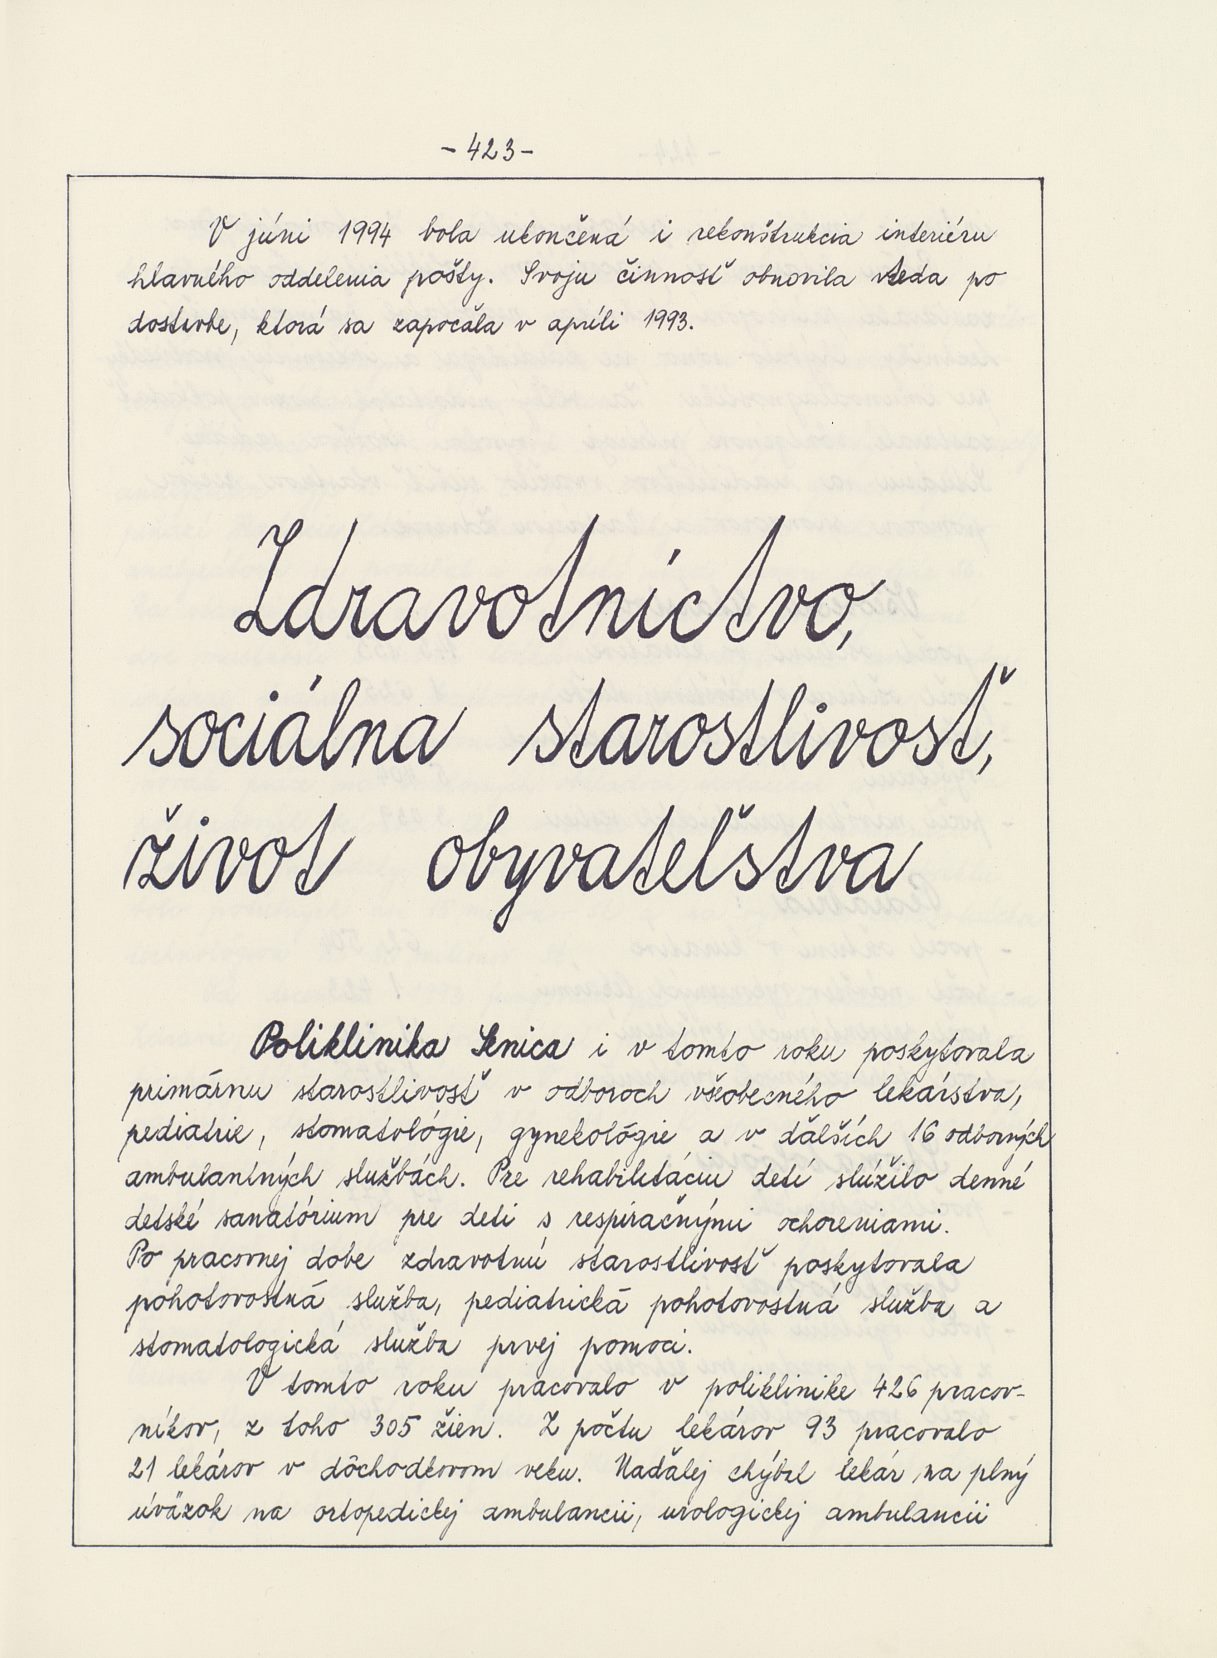 - 423 -
V júni 1994 bola ukončená i rekonštrukcia interiéru
hlavného oddelenia pošty. Svoju činnosť obnovila vteda po
dostavbe, ktorá sa započala v apríli 1993.
Zdravotníctvo,
sociálna starostlivosť,
život obyvateľstva
Poliklinika Senica i v tomto roku poskytovala
primárnu starostlivosť v odboroch všeobecného lekárstva,
pediatrie, stomatológie, gynekológie a v ďalších 16 odborných
ambulantných službách. Pre rehabilitáciu detí slúžilo denné
detské sanatórium pre deti s respiračnými ochoreniami.
Po pracovnej dobe zdravotnú starostlivosť poskytovala
pohotovostná služba, pediatrická pohotovostná služba a
stomatologická služba prvej pomoci.
V tomto roku pracovalo v poliklinike 426 pracov-
níkov, z toho 305 žien. Z počtu lekárov 93 pracovalo
21 lekárov v dôchodkovom veku. Naďalej chýbal lekár na plný
úväzok na ortopedickej ambulancii, urologickej ambulancii